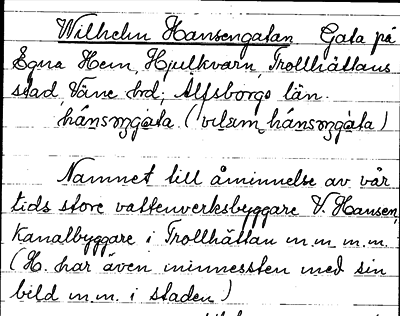 Wilhelm Hansengatan Gata på
Egna Hem, Hjulkvarn, Trollhättans
stad, Väne hd; Älfsborgs län.
Namnet till åminnelse av vår
tids store vattenverksbyggare V. Hansen,
Kanalbyggare i Trollhättan m.m. m.m.
(H. har även minnessten med sin
bild m.m. i staden)